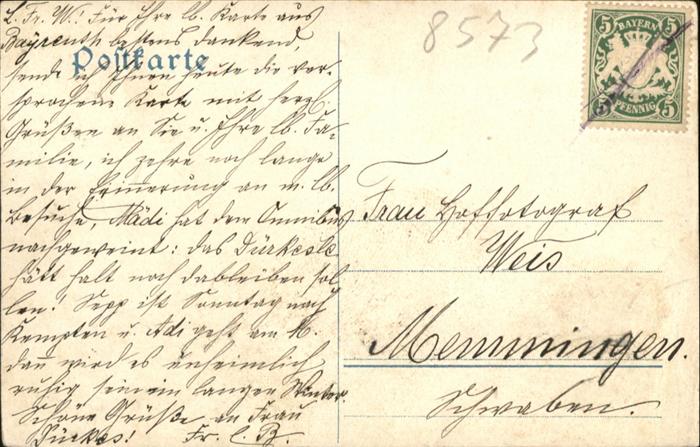 L. Fr. W.! Für Ihre lb. Karte aus
Bayreuth bestens dankend,
sende ich Ihnen heute die ver-
sprochene Karte mit herzl.
Grüßen an Sie u. Ihre lb. Fa-
milie, ich zehre noch lange
in der Erinnerung an m. lb.
Besuche, Mädi hat dem Omnibus
nachgeweint: das Dürkesle
hätt halt noch dableiben sol-
len! Sepp ist Sonntag nach
Kempten u. Adi geht am
dan wird es unheimlich
ruhig sein ein langer Winter.
Schöne Grüße an Frau
Dürkes! Fr. C. B.
Postkarte
8573
5 BAYERN 5
5 PFENNIG 5
Frau Hoffotograf
Weis
Memmingen.
Schwaben.